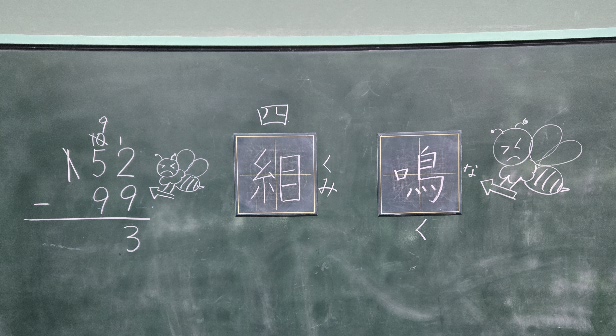 9
10 1
152
- 99
3
四
組
くみ
鳴
な
く